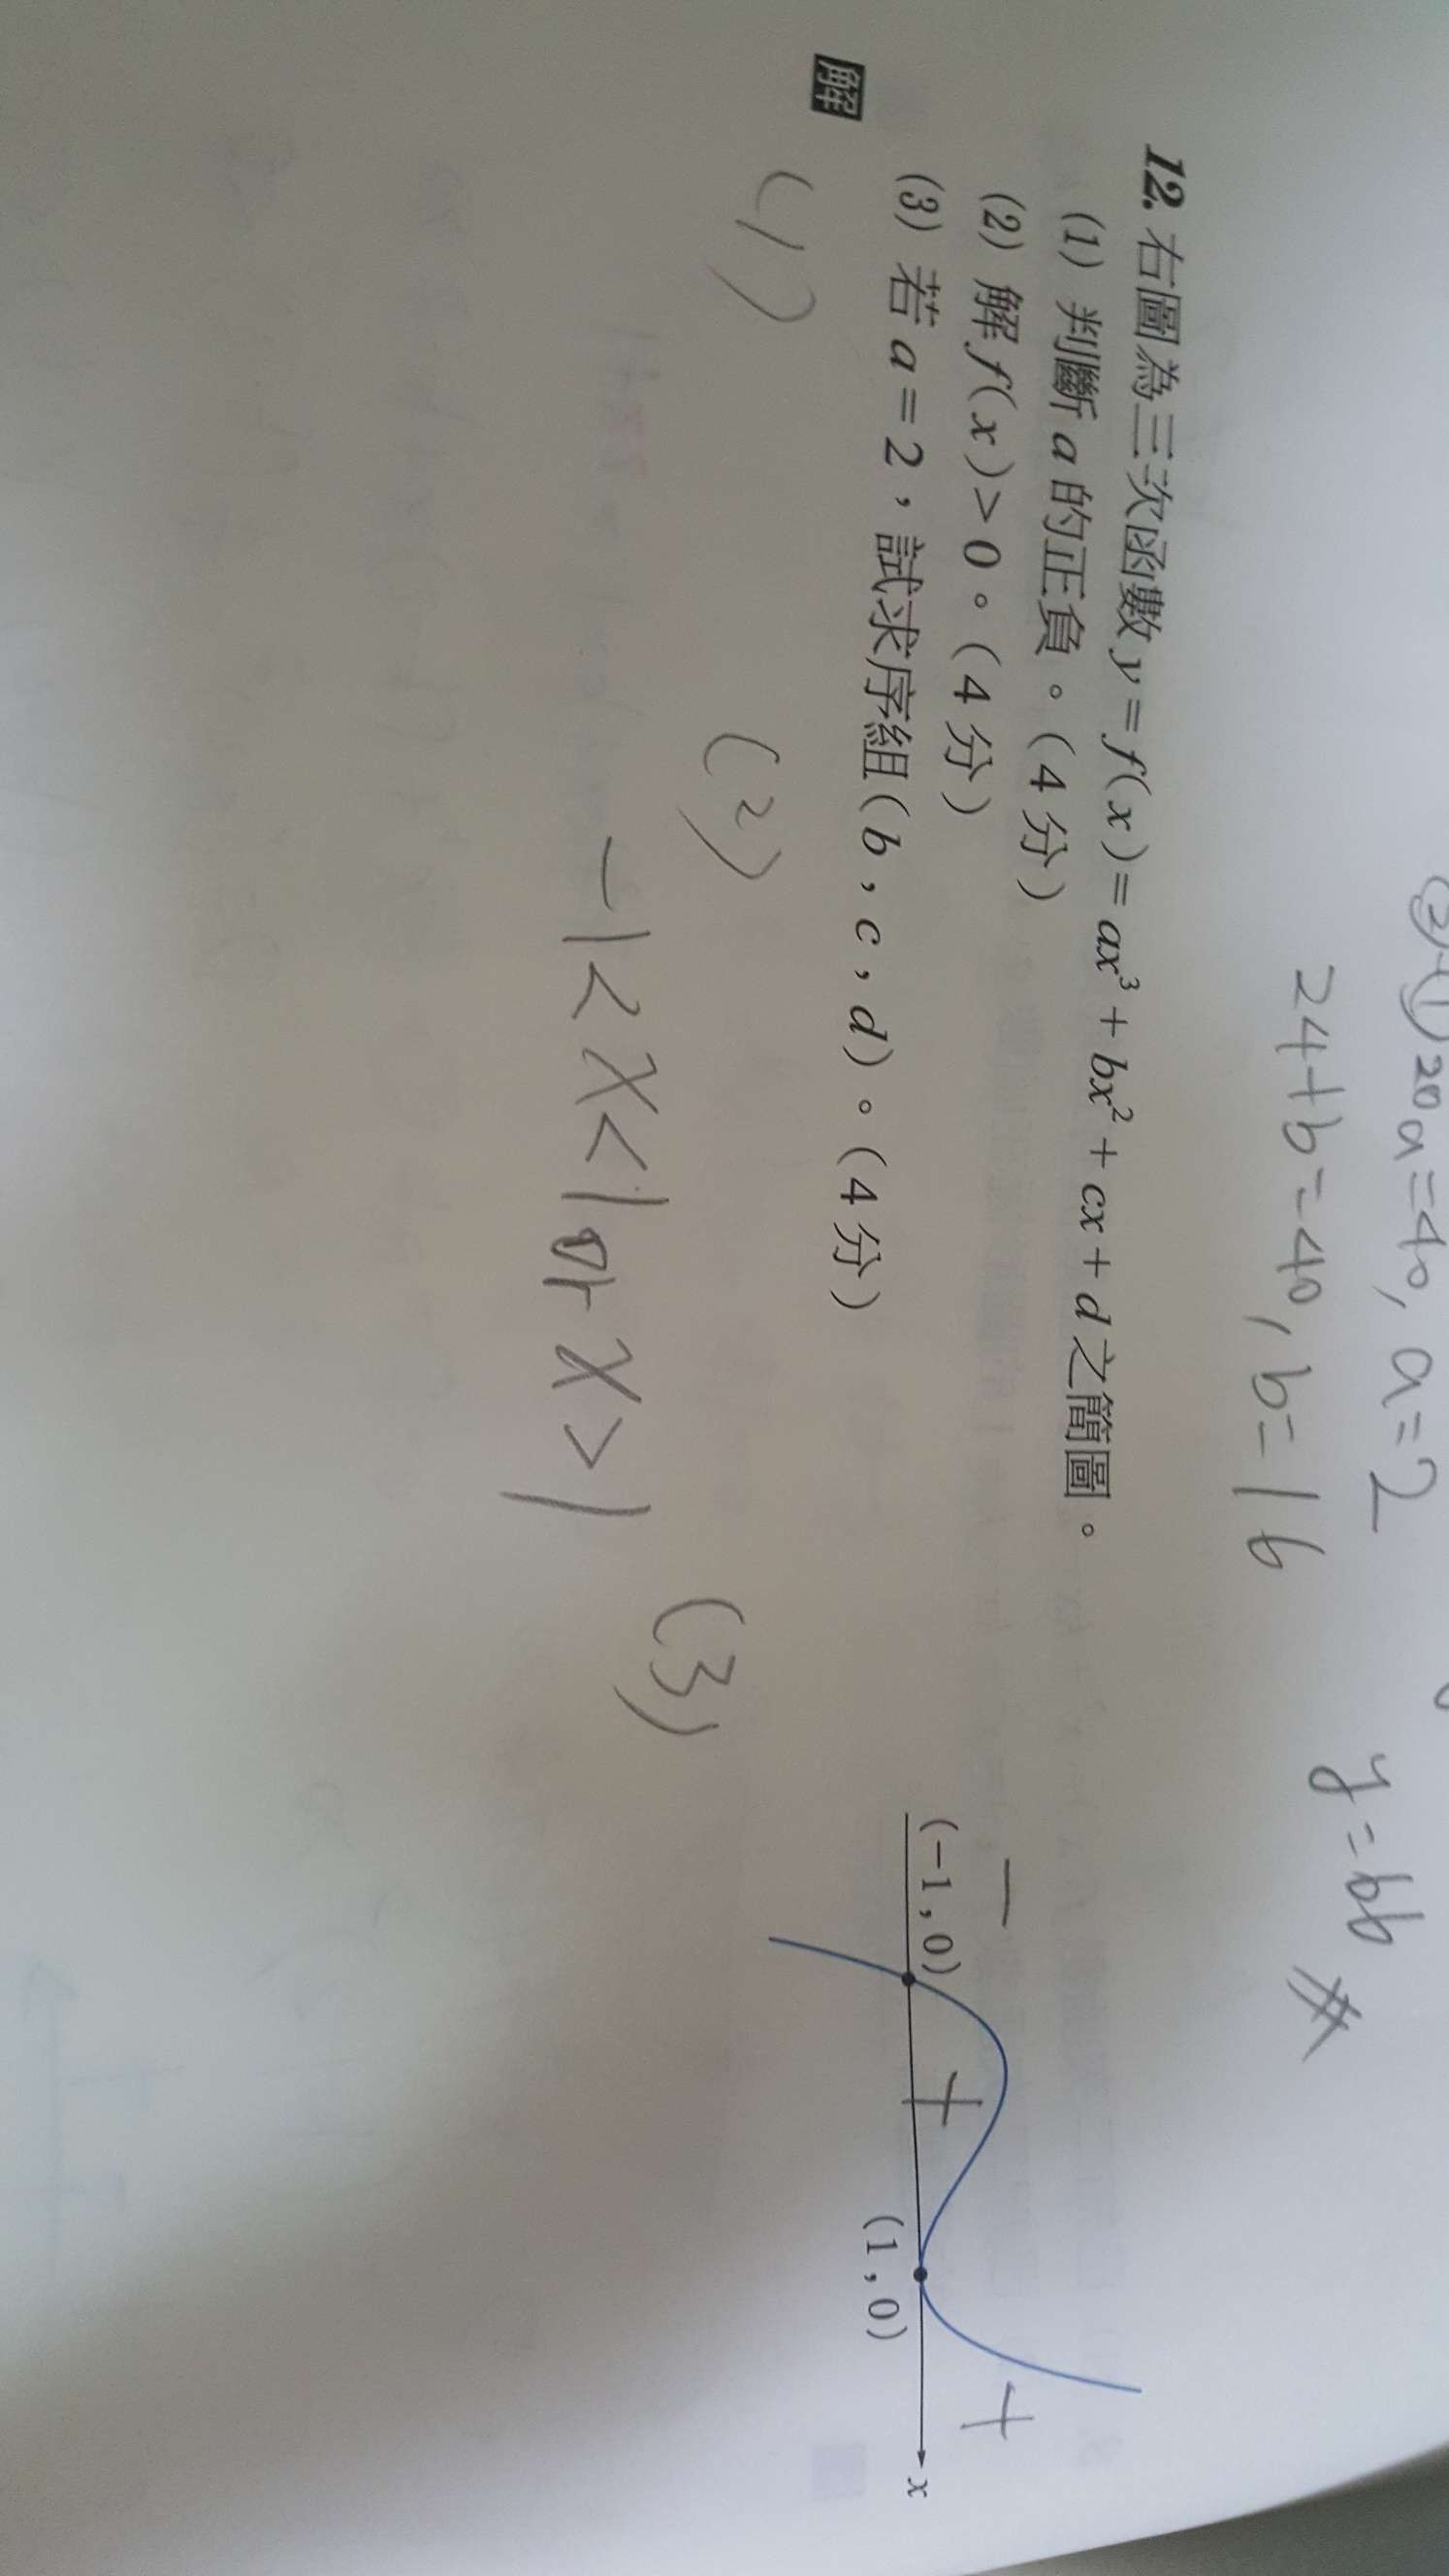 ②+① 20a=40, a=2
24+b=40, b=16
y=bb #
12. 右圖為三次函數 y=f(x)=ax³+bx²+cx+d 之簡圖。
(1) 判斷 a 的正負。(4 分)
(2) 解 f(x)>0。(4 分)
(3) 若 a=2,試求序組(b,c,d)。(4 分)
− + +
(−1,0) (1,0) x
解
(1) (2) (3)
−1<x<1 or x>1